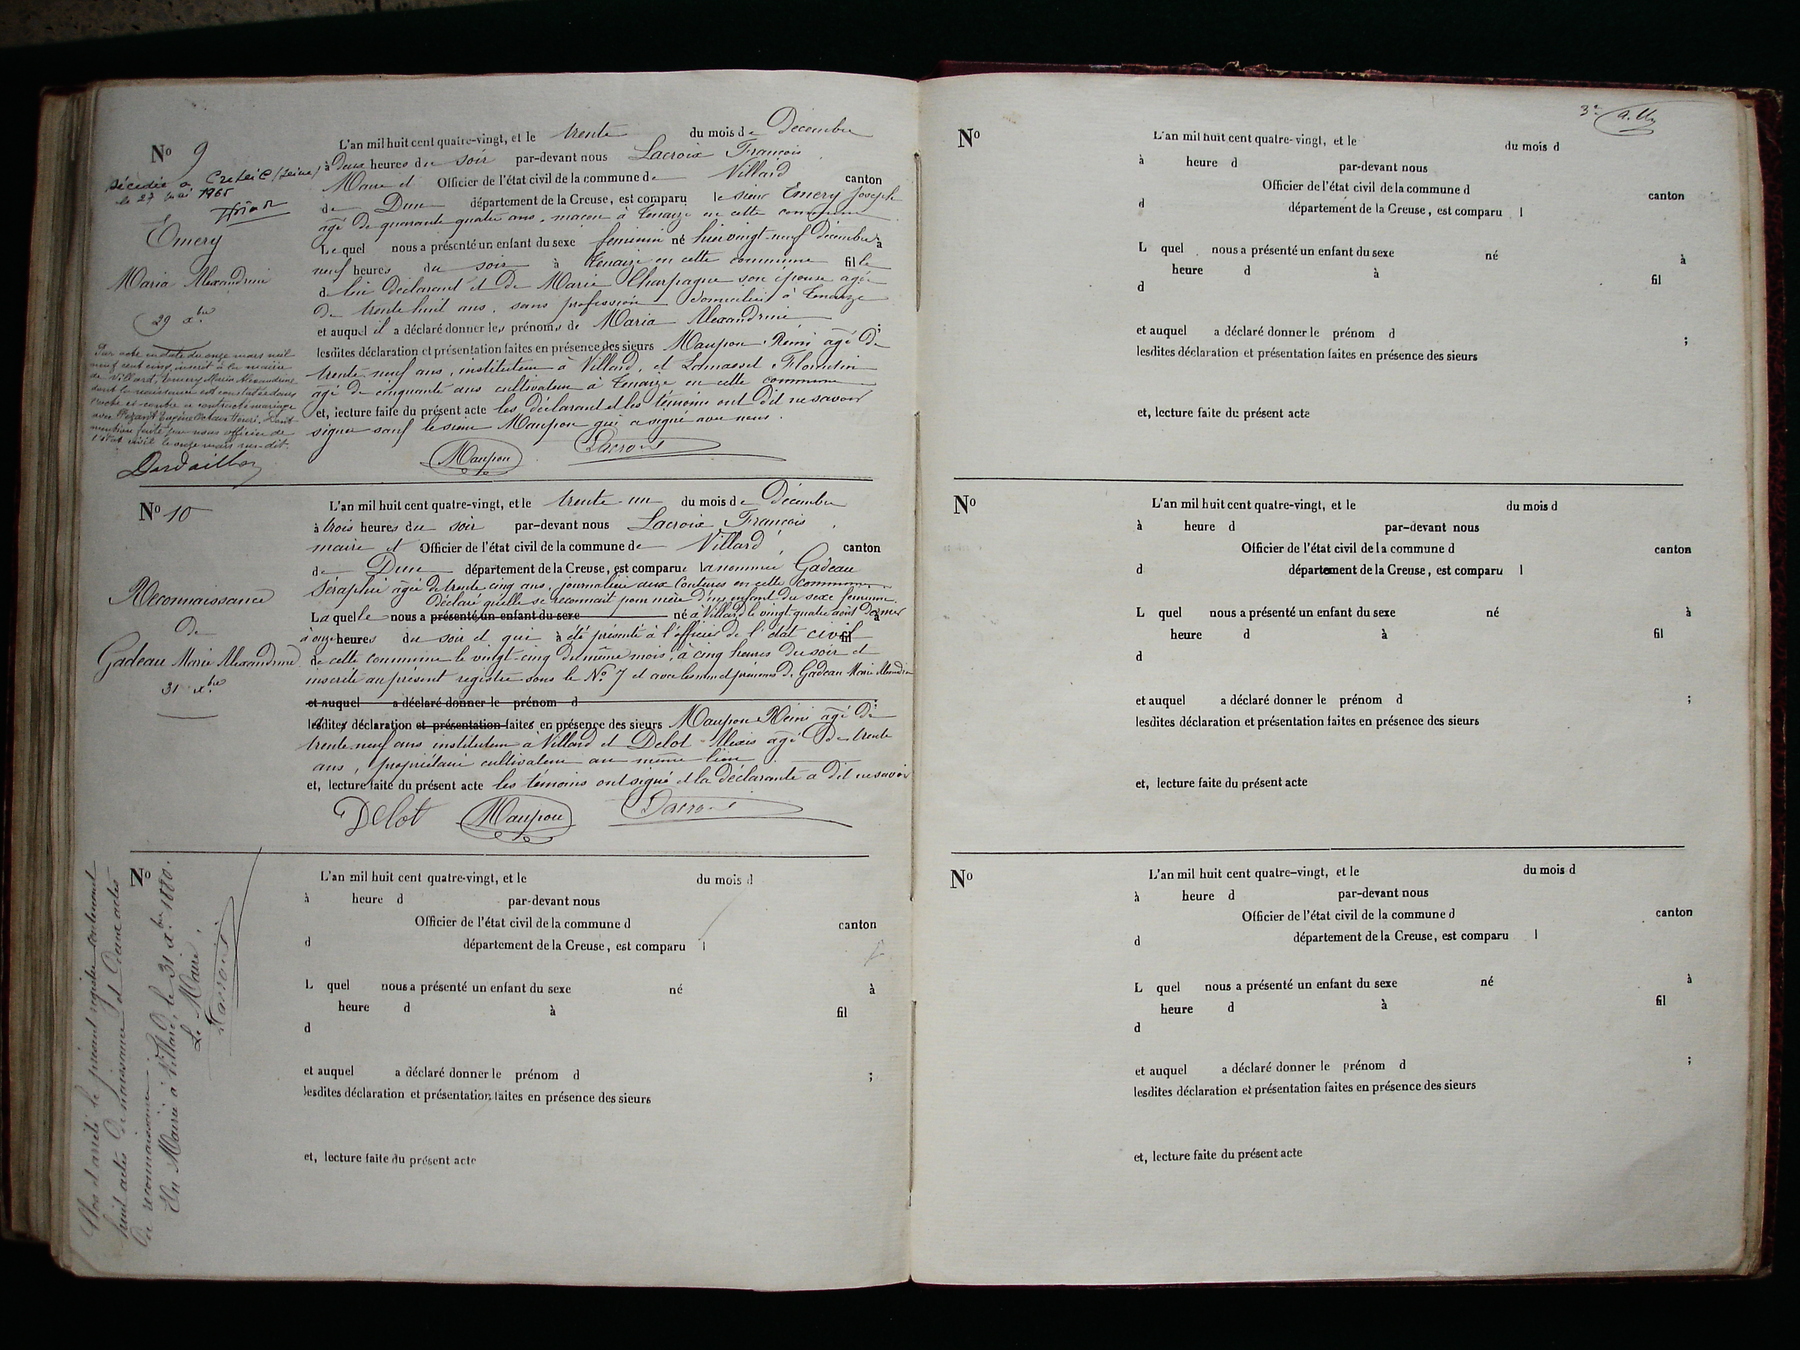 No 9
décédée à Créteil (Seine)
le 27 mai 1965
Emery
Maria Alexandrine
29 Xbre
Par acte en date du onze mars mil
neuf cent cinq, inscrit à la mairie
de Villard, Emery Maria Alexandrine
dont la naissance est constatée dans
l'acte ci-contre a contracté mariage
avec Eugène Octave Henri.
mention faite par nous officier de
l'état civil le onze mars sus-dit.
Dardaillon
L'an mil huit cent quatre-vingt, et le trente du mois de Décembre
à deux heures du soir par-devant nous Lacroix François
Maire et Officier de l'état civil de la commune de Villard canton
de Dun département de la Creuse, est comparu le sieur Emery Joseph
âgé de quarante quatre ans, maçon à Tenaize en cette commune
Lequel nous a présenté un enfant du sexe feminin né hier vingt-neuf décembre à
neuf heures du soir à Tenaize en cette commune fille
de lui déclarant et de Marie Charpagne son épouse agée
de trente huit ans, sans profession domiciliés à Tenaize
et auquel il a déclaré donner les prénoms de Maria Alexandrine ;
lesdites déclaration et présentation faites en présence des sieurs Maupou Rémi âgé de
trente neuf ans, instituteur à Villard, et Florentin
âgé de cinquante ans cultivateur à Tenaize en cette commune
et, lecture faite du présent acte les déclarant et les témoins ont dit ne savoir
signer sauf le sieur Maupou qui a signé avec nous.
Maupou Lacroix
No 10
Reconnaissance
de
Gadeau Marie Alexandrine
31 Xbre
L'an mil huit cent quatre-vingt, et le trente un du mois de Décembre
à trois heures du soir par-devant nous Lacroix François
maire et Officier de l'état civil de la commune de Villard, canton
de Dun département de la Creuse, est comparue la nommée Gadeau
Séraphie âgée de trente cinq ans, journalière aux Coutures en cette commune
déclaré qu'elle se reconnait pour mère d'un enfant du sexe feminin
Laquelle nous a présenté un enfant du sexe né à Villard le vingt-quatre août dernier à
à onze heures du soir et qui à été présenté à l'officier de l'état civil fil
de cette commune le vingt-cinq du même mois, à cinq heures du soir et
inscrite au présent registre sous le No 7 et avec les nom et prénoms de Gadeau Marie Alexandrine
et auquel a déclaré donner le prénom d
lesdites déclaration et présentation faites en présence des sieurs Maupou Rémi âgé de
trente neuf ans instituteur à Villard et Delot Alexis âgé de trente
ans, propriétaire cultivateur au même lieu
et, lecture faite du présent acte les témoins ont signé et la déclarante a dit ne savoir
Delot Maupou Lacroix
No
Clos et arrêté le présent registre contenant
huit actes de naissance et deux actes
de reconnaissance.
En Mairie à Villard, le 31 Xbre 1880.
Le Maire,
Lacroix
L'an mil huit cent quatre-vingt, et le du mois d
à heure d par-devant nous
Officier de l'état civil de la commune d canton
d département de la Creuse, est comparu l
L quel nous a présenté un enfant du sexe né à
heure d à fil
d
et auquel a déclaré donner le prénom d ;
lesdites déclaration et présentation faites en présence des sieurs
et, lecture faite du présent acte
3e
No
L'an mil huit cent quatre-vingt, et le du mois d
à heure d par-devant nous
Officier de l'état civil de la commune d canton
d département de la Creuse, est comparu l
L quel nous a présenté un enfant du sexe né à
heure d à fil
d
et auquel a déclaré donner le prénom d ;
lesdites déclaration et présentation faites en présence des sieurs
et, lecture faite du présent acte
No
L'an mil huit cent quatre-vingt, et le du mois d
à heure d par-devant nous
Officier de l'état civil de la commune d canton
d département de la Creuse, est comparu l
L quel nous a présenté un enfant du sexe né à
heure d à fil
d
et auquel a déclaré donner le prénom d ;
lesdites déclaration et présentation faites en présence des sieurs
et, lecture faite du présent acte
No
L'an mil huit cent quatre-vingt, et le du mois d
à heure d par-devant nous
Officier de l'état civil de la commune d canton
d département de la Creuse, est comparu l
L quel nous a présenté un enfant du sexe né à
heure d à fil
d
et auquel a déclaré donner le prénom d ;
lesdites déclaration et présentation faites en présence des sieurs
et, lecture faite du présent acte